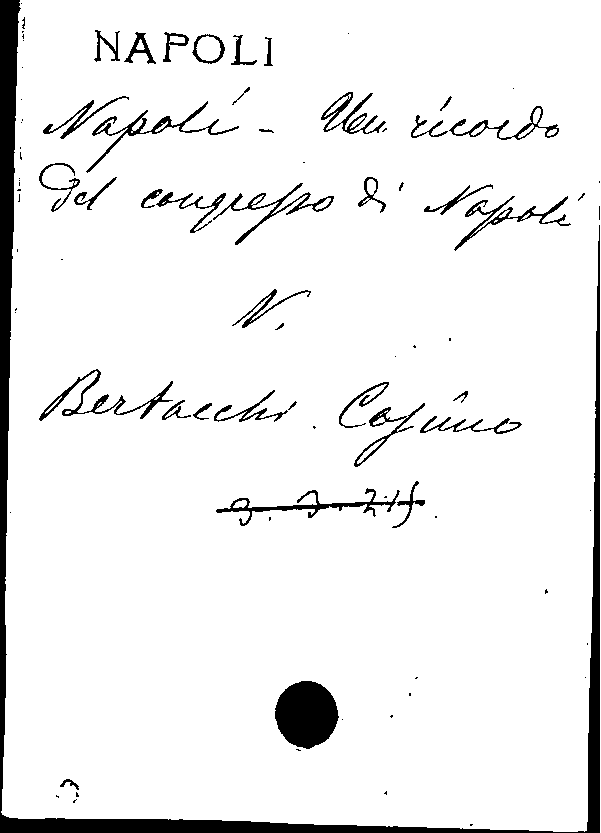 NAPOLI
Napoli - Un ricordo
del congresso di Napoli
N.
Bertacchi Cosimo
3. 3. 215